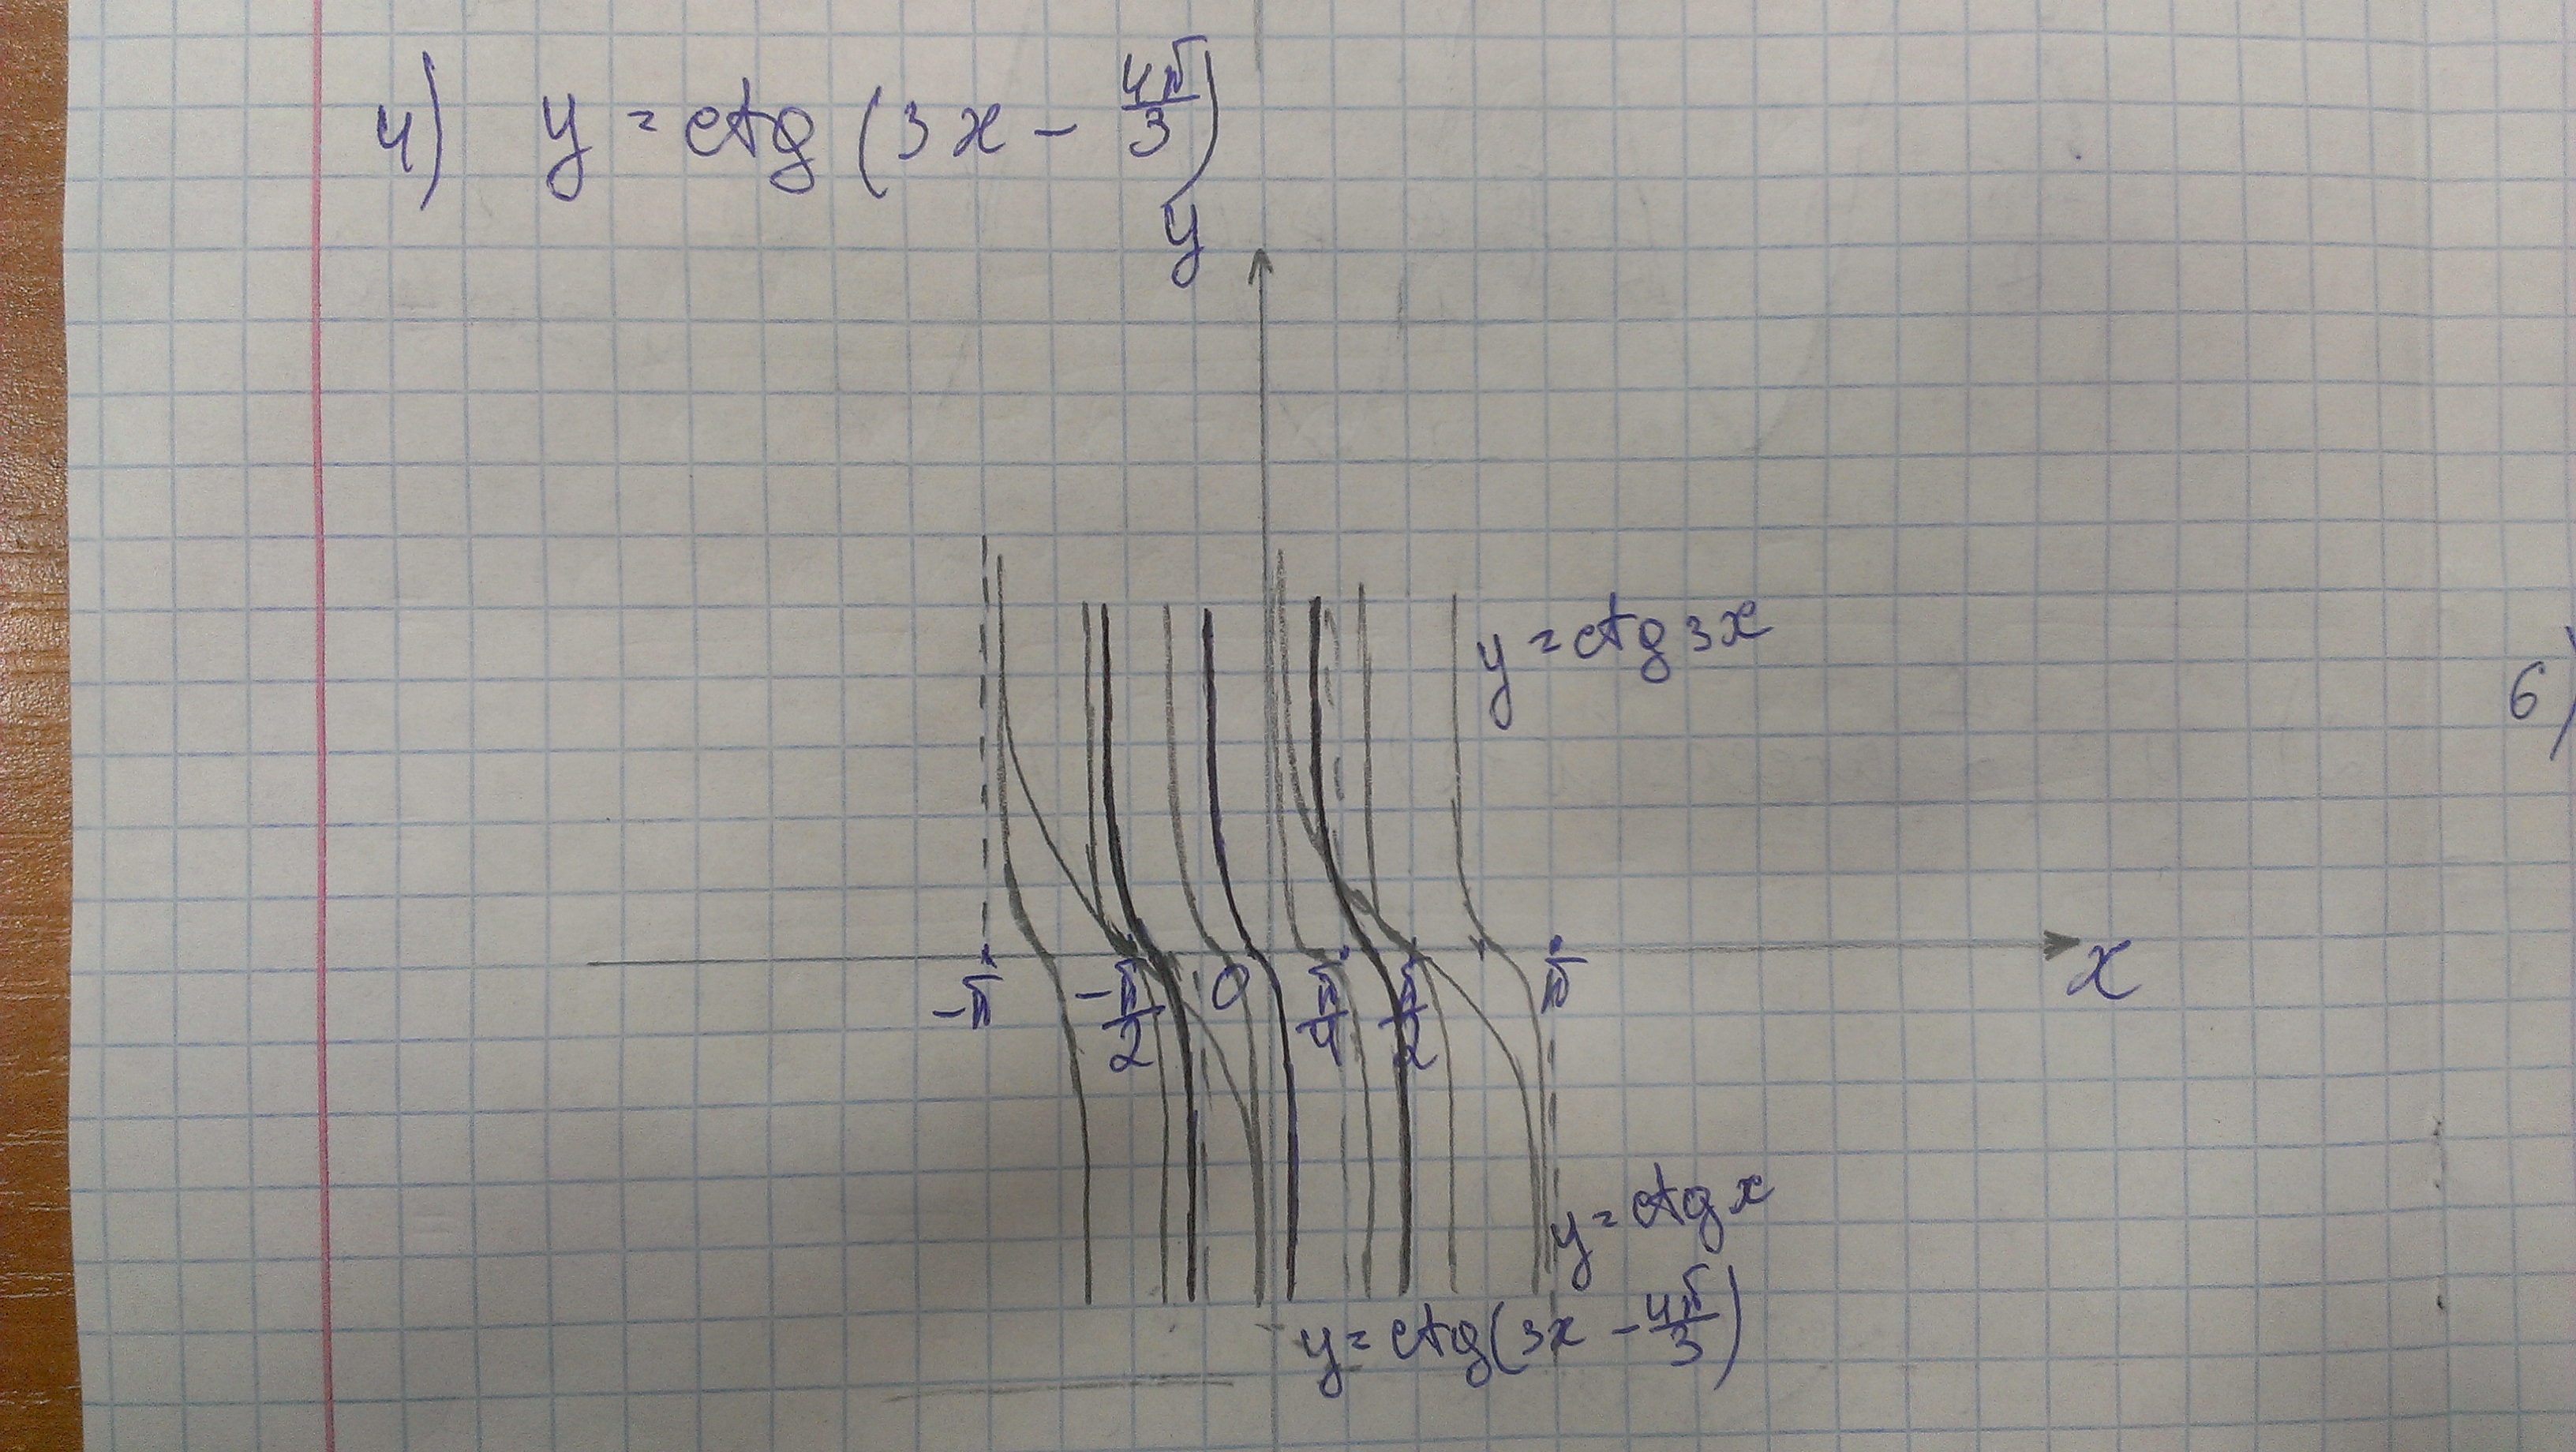 4) y = ctg (3x - 4π/3)
y
y = ctg 3x
6)
-π -π/2 0 π/4 π/2 π x
y = ctg x
y = ctg(3x - 4π/3)